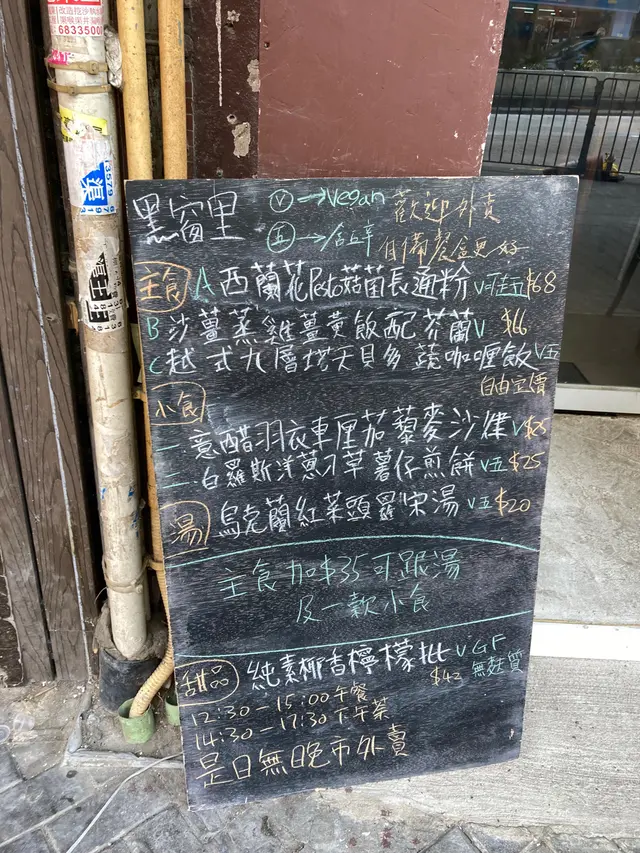 改造挖沙執漏
68335001
黑窗里
Ⓥ→Vegan
歡迎外賣
㊄→含五辛
自備餐盒更好
主食
A 西蘭花Pesto菇菌長通粉 V可走五 $68
B 沙薑蒸雞薑黃飯配芥蘭 V $66
C 越式九層塔天貝多蔬咖喱飯 V五
自由定價
小食
一. 意醋羽衣車厘茄藜麥沙律 V $25
二. 白羅斯洋蔥刁草薯仔煎餅 V五 $25
湯
烏克蘭紅菜頭羅宋湯 V五 $20
主食加$35可跟湯
及一款小食
甜品
純素椰香檸檬批 V GF
$42 無麩質
12:30-15:00午餐
14:30-17:30下午茶
是日無晚市外賣